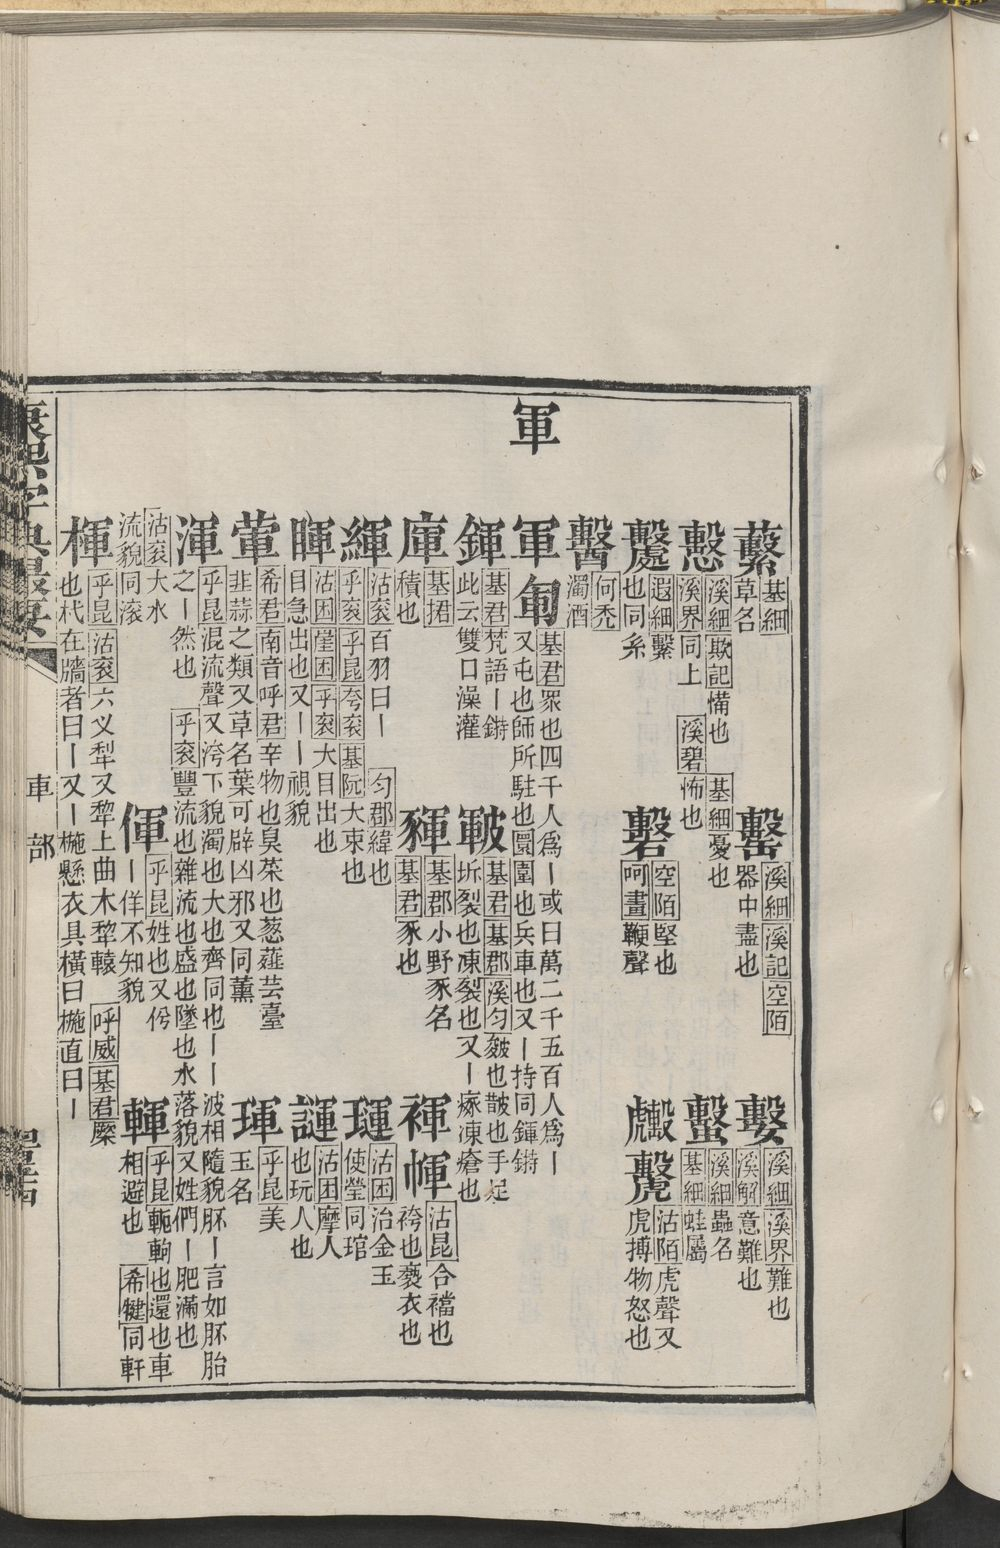 蘩 基細 草名
罊 溪細 溪記 空陌 器中盡也
嫛 溪細 溪界 難也 溪解 意難也
慤 溪細 欺記 憊也 基細 憂也 溪界 同上 溪碧 怖也
蟿 溪細 蟲名 基細 蛙屬
遐細 繫也同糸
礊 空陌 堅也 呵畫 鞕聲
沽陌 虎聲又虎搏物怒也
何禿 濁酒
軍
軍 匍 基君 眾也四千人爲丨或曰萬二千五百人爲丨又屯也師所駐也圜圍也兵車也又丨持同鍕鏘
鍕 基君 梵語丨鏘此云雙口澡灌
皸 基君 基郡 溪匀 皴也皵也手足坼裂也凍裂也又丨瘃凍瘡也
庫 基捃 積也
貚 基郡 小野豕名 基君 豕也
褌 㡓 沽昆 合襠也袴也褻衣也
緷 沽衮 百羽曰丨 匀郡 緯也 乎衮 乎昆 夸衮 基阮 大束也
璭 沽困 治金玉使瑩同琯
暉 沽困 崖困 乎衮 大目出也目急出也又丨丨視貌
諢 沽困 摩人也玩人也
葷 希君 南音呼君 辛物也臭菜也葱薤芸臺韭蒜之類又草名葉可辟凶邪又同薰
琿 乎昆 美玉名
渾 乎昆 混流聲又洿下貌濁也大也齊同也丨丨波相隨貌胚丨言如胚胎之丨然也 乎衮 豐流也雜流也盛也墜也水落貌又姓們丨肥滿也
沽衮 大水流貌同滚
僤 乎昆 姓也又伄丨佯不知貌
輑 乎昆 軛軥也還也車相避也 希犍 同軒
楎 乎昆 沽衮 六义犁又犂上曲木犂轅 呼威 基君 橜也杙在牆者曰丨又丨椸懸衣具橫曰椸直曰丨
康熙字典撮要
車部